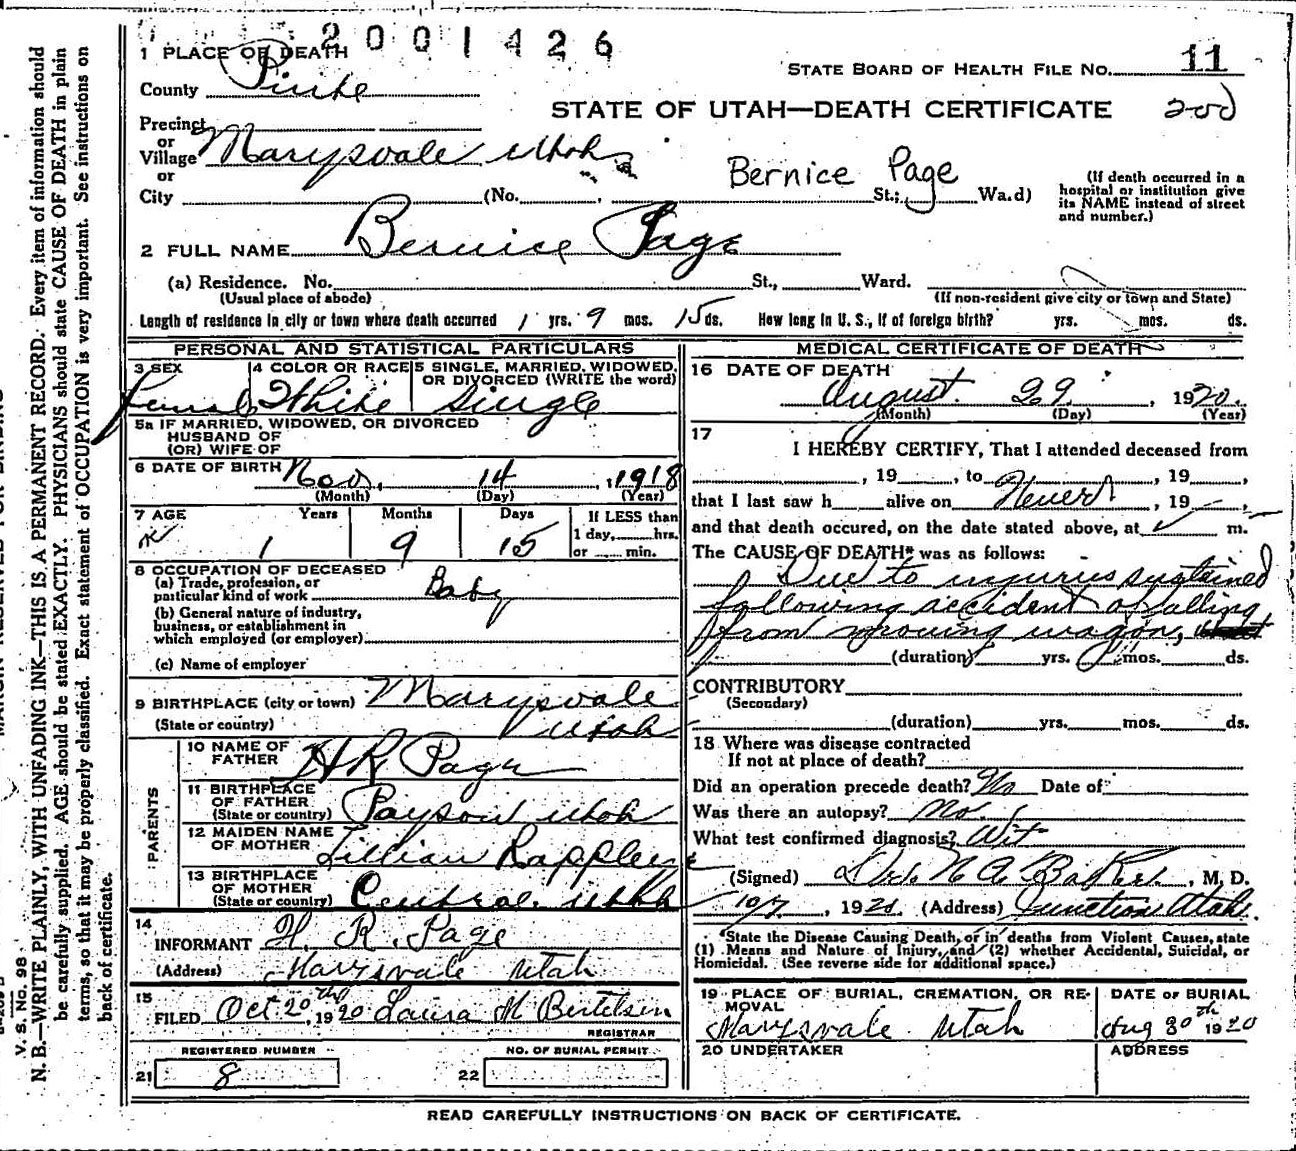 2001426
1 PLACE OF DEATH
STATE BOARD OF HEALTH FILE NO. 11
County Piute
STATE OF UTAH—DEATH CERTIFICATE 200
Precinct
or
Village Marysvale Utah
or
City (No. , St.; Wa.d)
Bernice Page
(If death occurred in a
hospital or institution give
its NAME instead of street
and number.)
2 FULL NAME Bernice Page
(a) Residence. No. St., Ward.
(Usual place of abode) (If non-resident give city or town and State)
Length of residence in city or town where death occurred 1 yrs. 9 mos. 15 ds. How long in U. S., if of foreign birth? yrs. mos. ds.
PERSONAL AND STATISTICAL PARTICULARS
3 SEX Female
4 COLOR OR RACE White
5 SINGLE, MARRIED, WIDOWED,
OR DIVORCED (WRITE the word)
Single
5a IF MARRIED, WIDOWED, OR DIVORCED
HUSBAND OF
(OR) WIFE OF
6 DATE OF BIRTH Nov. 14, 1918
(Month) (Day) (Year)
7 AGE Years Months Days If LESS than
1 day, hrs.
or min.
1 9 15
8 OCCUPATION OF DECEASED
(a) Trade, profession, or
particular kind of work Baby
(b) General nature of industry,
business, or establishment in
which employed (or employer)
(c) Name of employer
9 BIRTHPLACE (city or town) Marysvale
(State or country) Utah
PARENTS
10 NAME OF
FATHER H R Page
11 BIRTHPLACE
OF FATHER
(State or country) Payson Utah
12 MAIDEN NAME
OF MOTHER Lillian Rappleye
13 BIRTHPLACE
OF MOTHER
(State or country) Central Utah
14
INFORMANT H. R. Page
(Address) Marysvale Utah
15
FILED Oct 20th, 1920 Laura M Bertelsen
REGISTRAR
REGISTERED NUMBER NO. OF BURIAL PERMIT
21 8 22
MEDICAL CERTIFICATE OF DEATH
16 DATE OF DEATH
August 29, 1920
(Month) (Day) (Year)
17
I HEREBY CERTIFY, That I attended deceased from
, 19 , to , 19 ,
that I last saw h alive on Never , 19 ,
and that death occured, on the date stated above, at m.
The CAUSE OF DEATH* was as follows:
Due to injuries sustained
following accident of falling
from mowing wagon,
(duration) yrs. mos. ds.
CONTRIBUTORY
(Secondary)
(duration) yrs. mos. ds.
18 Where was disease contracted
If not at place of death?
Did an operation precede death? No Date of
Was there an autopsy? No.
What test confirmed diagnosis? Wit
(Signed) Dr. N. A. Baker, M. D.
10/7, 1920 (Address) Junction Utah.
*State the Disease Causing Death, or in deaths from Violent Causes, state
(1) Means and Nature of Injury, and (2) whether Accidental, Suicidal, or
Homicidal. (See reverse side for additional space.)
19 PLACE OF BURIAL, CREMATION, OR RE-
MOVAL
Marysvale Utah
DATE OF BURIAL
Aug 30th 1920
20 UNDERTAKER ADDRESS
READ CAREFULLY INSTRUCTIONS ON BACK OF CERTIFICATE.
V. S. No. 98
N. B.—WRITE PLAINLY, WITH UNFADING INK—THIS IS A PERMANENT RECORD. Every item of information should
be carefully supplied. AGE should be stated EXACTLY. PHYSICIANS should state CAUSE OF DEATH in plain
terms, so that it may be properly classified. Exact statement of OCCUPATION is very important. See instructions on
back of certificate.